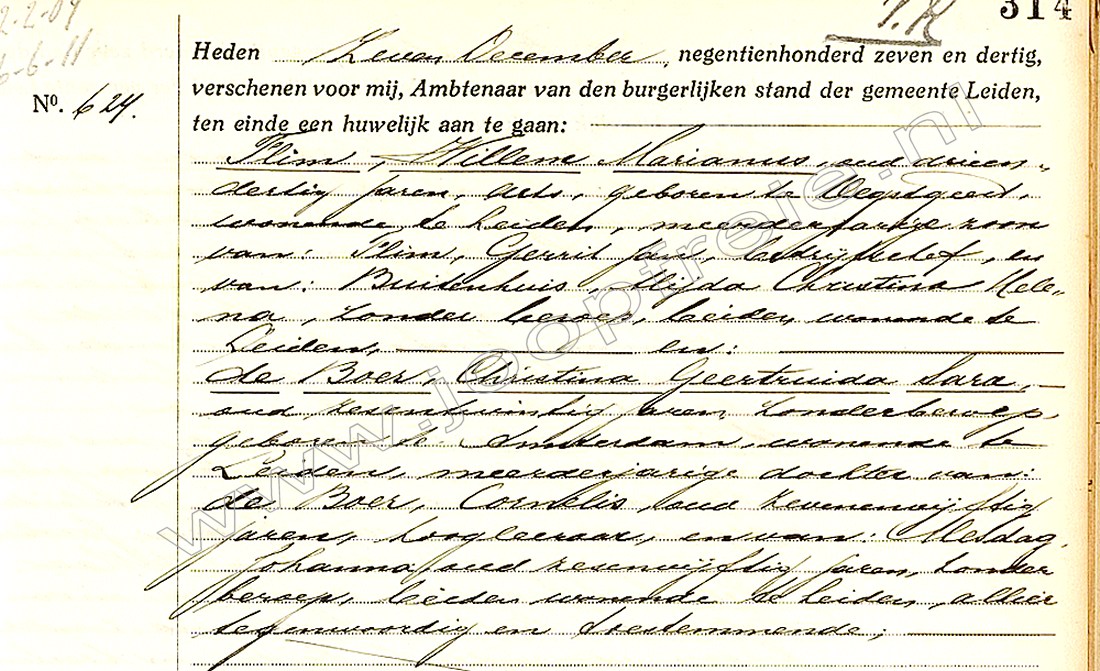 314
2-2-04
6-6-11
Heden Zeven December, negentienhonderd zeven en dertig,
verschenen voor mij, Ambtenaar van den burgerlijken stand der gemeente Leiden,
No. 624.
ten einde een huwelijk aan te gaan:
Plim, Willem Marianus, oud drieen-
dertig jaren, arts, geboren te Oegstgeest,
wonende te Leiden, meerderjarige zoon
van: Plim, Gerrit Jan, bedrijfschef, en
van: Buitenhuis, Alijda Christina Hele-
na, zonder beroep, beiden wonende te
Leiden, en:
de Boer, Christina Geertruida Sara,
oud zesentwintig jaren, zonder beroep,
geboren te Amsterdam, wonende te
Leiden, meerderjarige dochter van:
de Boer, Cornelis, oud zevenenvijftig
jaren, hoogleeraar, en van: Mesdag,
Johanna, oud zesenvijftig jaren, zonder
beroep, beiden wonende te Leiden, alhier
tegenwoordig en toestemmende;
www.joopfreie.nl